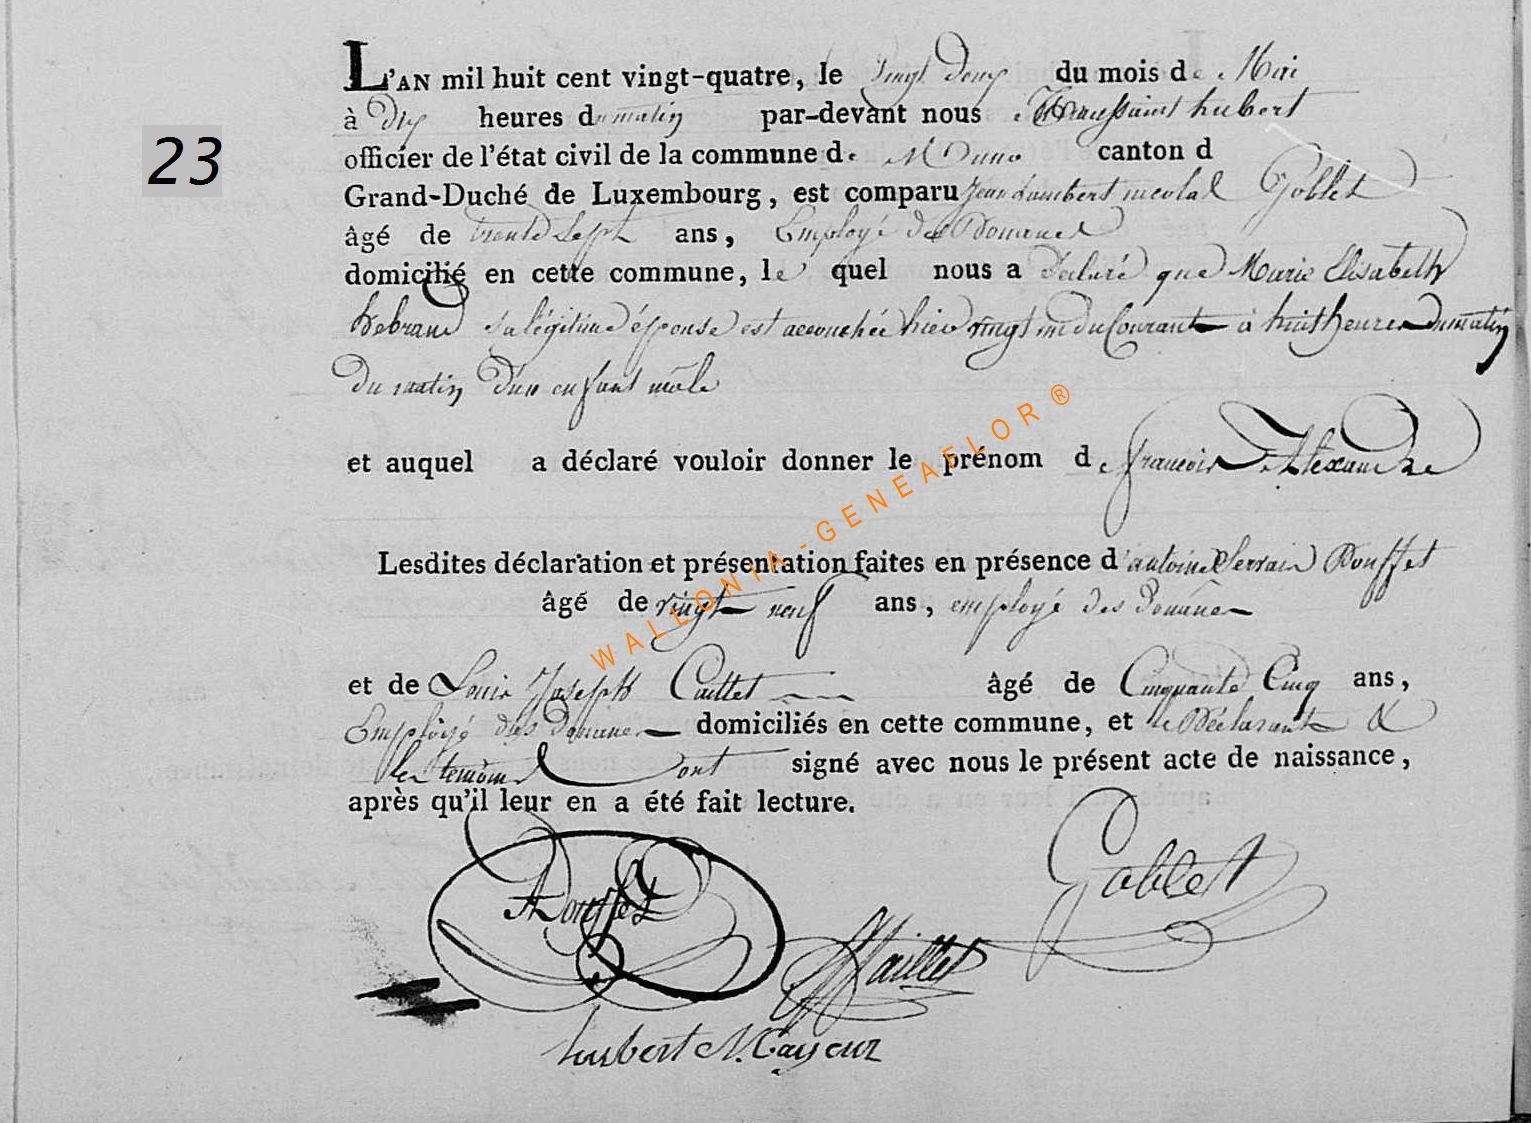 23
L'AN mil huit cent vingt-quatre, le Vingt Deux du mois de Mai
à Dix heures du matin par-devant nous Toussaint hubert
officier de l'état civil de la commune de Muno canton d
Grand-Duché de Luxembourg, est comparu Jean Lambert nicolas Goblet
âgé de trente Sept ans, Employé des Douanes
domicilié en cette commune, le quel nous a Déclaré que Marie Elisabeth
Debrand Sa légitime épouse est accouchée hier vingt un du Courant à huit heures du matin
Du matin D'un enfant mâle
et auquel a déclaré vouloir donner le prénom de francois Alexandre
Lesdites déclaration et présentation faites en présence d'antoine Douffet
âgé de vingt neuf ans, employé des Douanes
et de Louis Joseph Caillet âgé de Cinquante Cinq ans,
Employé des Douanes domiciliés en cette commune, et le Déclarant &
les temoins ont signé avec nous le présent acte de naissance,
après qu'il leur en a été fait lecture.
Goblet
A Douffet
Caillet
hubert Mayeur
WALLONIA-GENEAFLOR®